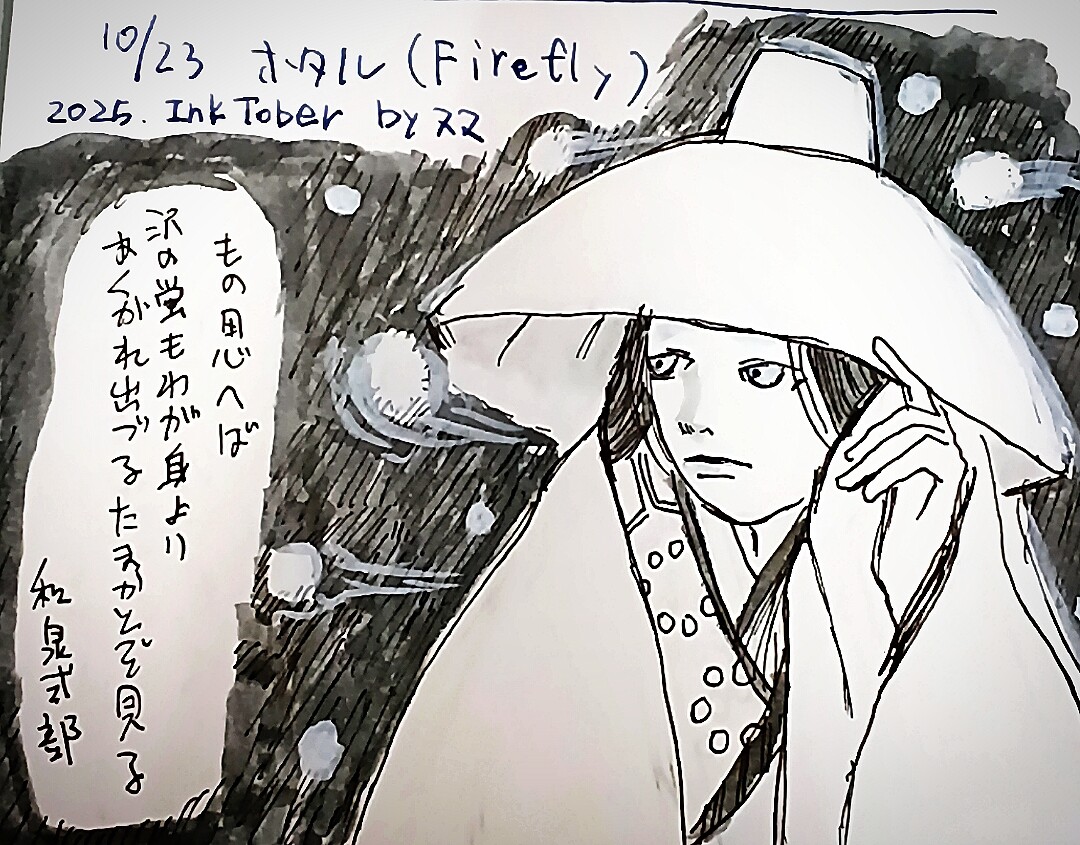 10/23 ホタル (Firefly)
2025. InkTober by ヌヌ
もの思へば
沢の蛍もわが身より
あくがれ出づるたまかとぞ見る
和泉式部